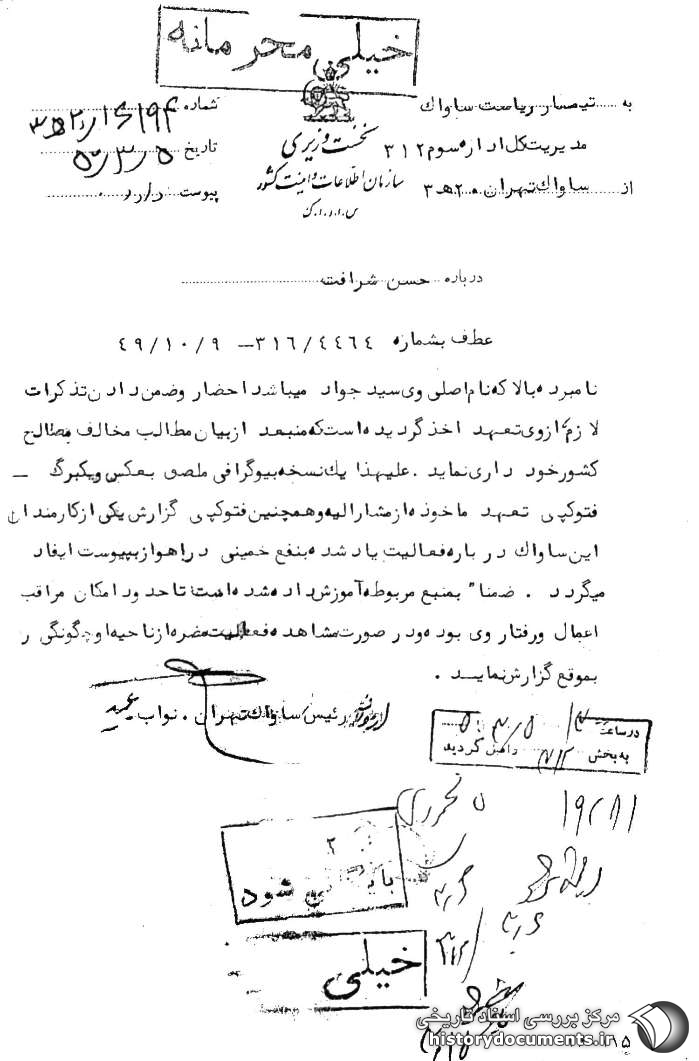 خیلی محرمانه
به تیمسار ریاست ساواك
مدیریت کل اداره سوم ۳۱۲
از ساواك تهران ۲۰ هـ ۳
نخست وزیری
سازمان اطلاعات و امنیت کشور
س.ا.و.ا.ک
شماره
تاریخ ۵۰/۳/۵
پیوست دارد
درباره حسن شرافت
عطف بشماره ۳۱۶/٤٤٦٤ – ٤۹/۱۰/۹
نامبرده بالا که نام اصلی وی سید جواد میباشد احضار و ضمن دادن تذکرات
لازم از وی تعهد اخذ گردیده است که منبعد از بیان مطالب مخالف مصالح
کشور خود داری نماید . علیهذا یك نسخه بیوگرافی ملصق بعکس و یکبرگ –
فتوکپی تعهد ماخوذه از مشارالیه و همچنین فتوکپی گزارش یکی از کارمندان
این ساواك در باره فعالیت یاد شده بنفع خمینی در اهواز بپیوست ایفاد
میگردد . ضمنا" بمنبع مربوطه آموزش داده شده است تا حدود امکان مراقب
اعمال و رفتار وی بوده و در صورت مشاهده فعالیت مضره از ناحیه او چگونگی را
بموقع گزارش نمایید .
رئیس ساواك تهران . نواب
در ساعت
به بخش ۳۱۲ واصل گردید
بایگانی شود
خیلی
مرکز بررسی اسناد تاریخی
historydocuments.ir
۵